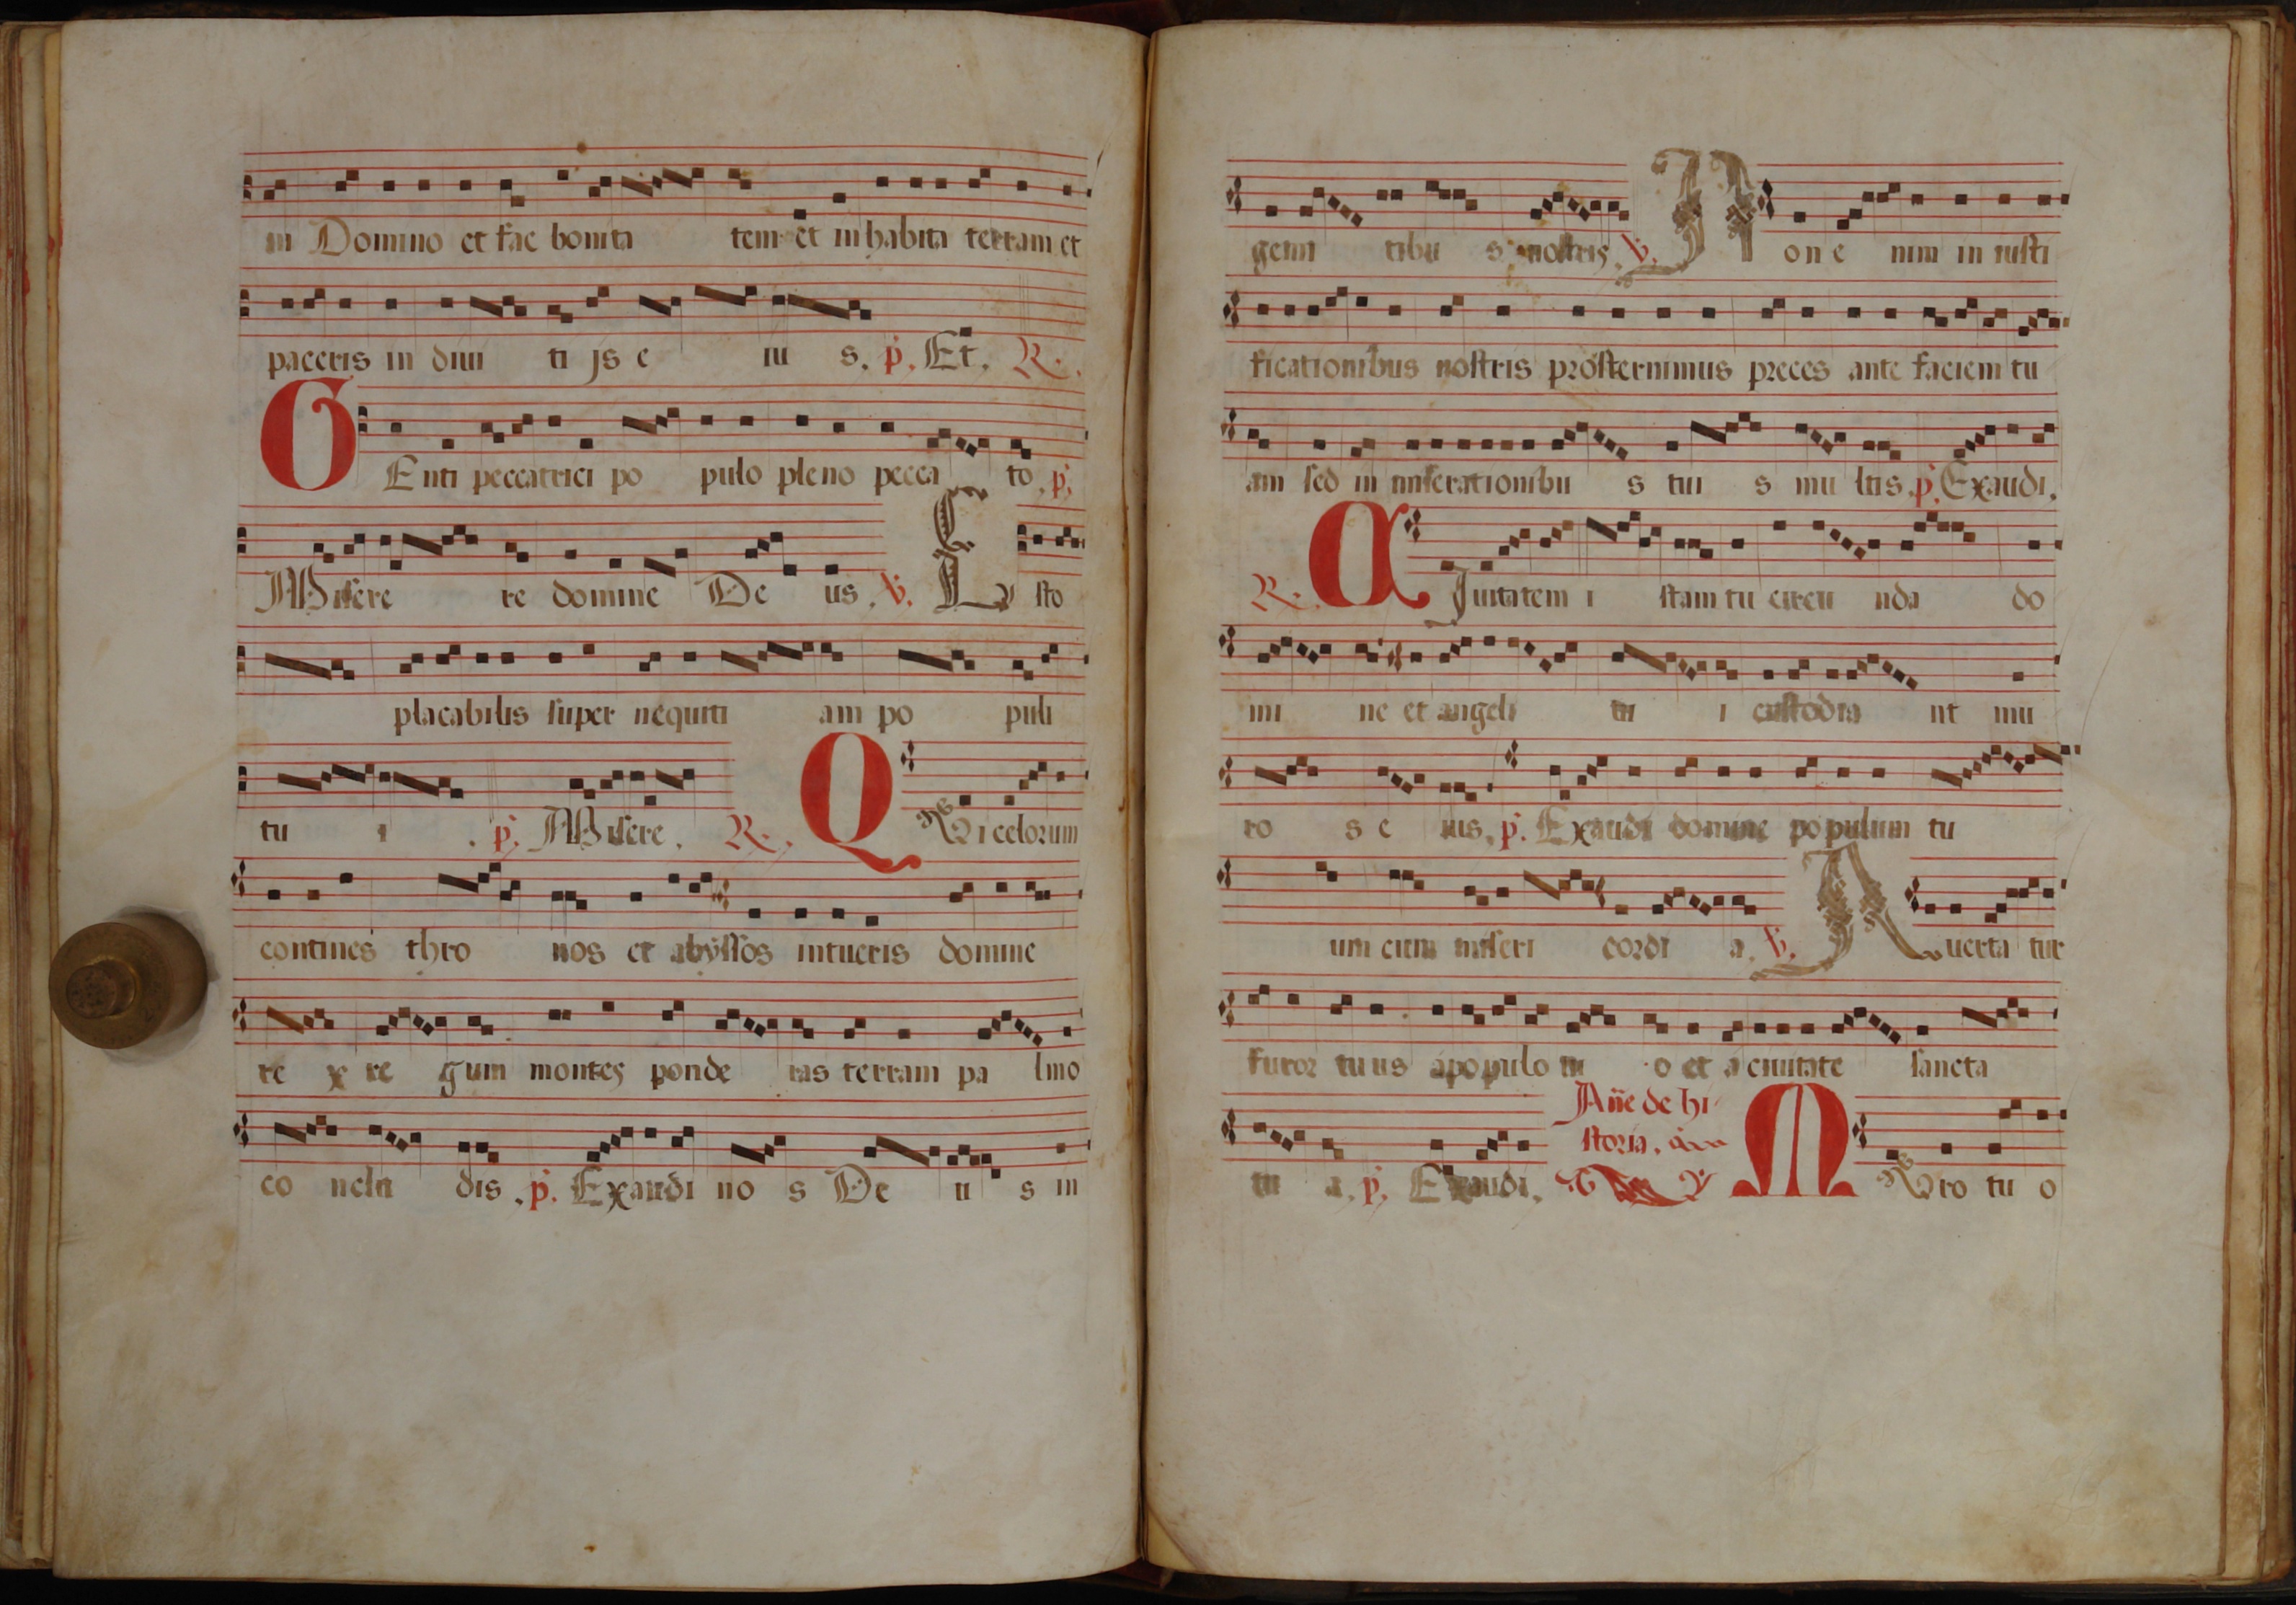 in Domino et fac bonita tem et inhabita terram et
pasceris in diui ti js e iu s. p. Et. R.
GEnti peccatrici po pulo pleno pecca to. p.
Misere re domine De us. V. E sto
placabilis super nequiti am po puli
tu i . p. Misere. R. QVi celorum
contines thro nos et abyssos intueris domine
re x re gum montes ponde ras terram pa lmo
co nclu dis. p. Exaudi no s De u s in
gemi tibu s nostris. V. Non e nim in iusti
ficationibus nostris prosternimus preces ante faciem tu
am sed in miserationibu s tui s mu ltis. p. Exaudi.
R. CIuitatem i stam tu circu nda do
mi ne et angeli tu i custodia nt mu
ro s e ius. p. Exaudi domine populum tu
um cum miseri cordi a. V. Auerta tur
furor tuus a populo tu o et a ciuitate sancta
tu a. p. Exaudi. Añe de hi
storia. MVro tu o